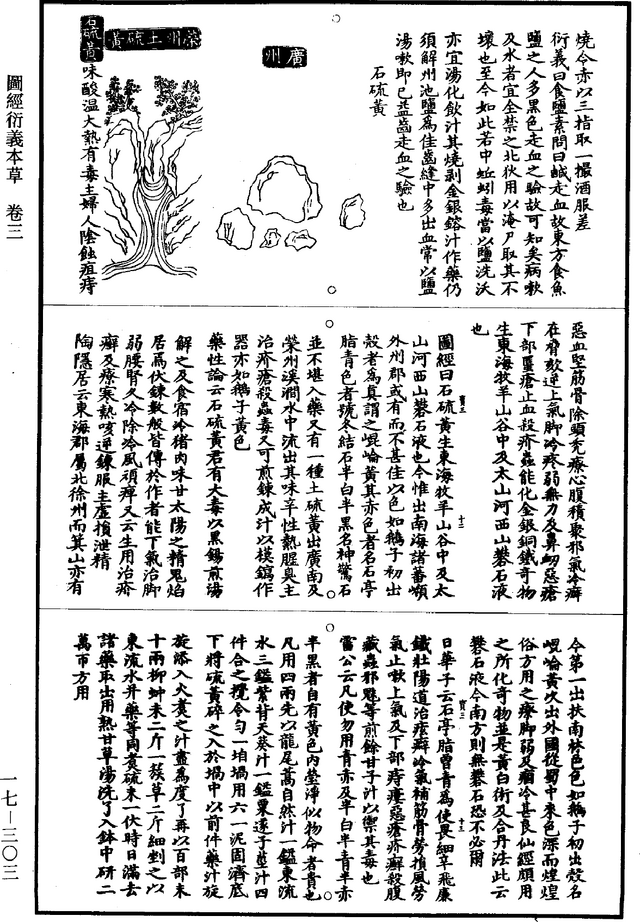 圖經衍義本草 卷三
一七—三〇三
燒令赤以三指取一撮酒服差
衍義曰食鹽素問曰鹹走血故東方食魚
鹽之人多黑色走血之驗故可知矣病嗽
及水者宜全禁之北狄用以淹尸取其不
壞也至今如此若中蚯蚓毒當以鹽洗沃
亦宜湯化飲汁其燒剥金銀鎔汁作藥仍
須解州池鹽為佳齒縫中多出血常以鹽
湯嗽即已益齒走血之驗也
石硫黃
廣州
榮州土硫黃
石硫黃味酸温大熱有毒主婦人陰蝕疽痔
惡血堅筋骨除頭禿療心腹積聚邪氣冷癖
在脅欬逆上氣脚冷疼弱無力及鼻衂惡瘡
下部䘌瘡止血殺疥蟲能化金銀銅鐵奇物
生東海牧羊山谷中及太山河西山礬石液
也
圖經曰石硫黃生東海牧羊山谷中及太
山河西山礬石液也今惟出南海諸番嶺
外州郡或有而不甚佳以色如鵝子初出
殼者為真謂之崐崘黃其赤色者名石亭
脂青色者號冬結石半白半黑名神驚石
並不堪入藥又有一種土硫黃出廣南及
榮州溪澗水中流出其味辛性熱腥臭主
治疥瘡殺蟲毒又可煎鍊成汁以模鎬作
器亦如鵝子黃色
藥性論云石硫黃君有大毒以黑錫煎湯
解之及食宿冷猪肉味甘太陽之精鬼焰
居焉伏鍊數般皆傳於作者能下氣治脚
弱腰腎久冷除冷風頑痺又云生用治疥
癬及療寒熱咳逆鍊服主虛損泄精
陶隱居云東海郡屬北徐州而箕山亦有
今第一出扶南林邑色如鵝子初出殼名
崐崘黃次出外國從蜀中來色深而煌煌
俗方用之療脚弱及痼冷甚良仙經頗用
之所化奇物並是黃白術及合丹法此云
礬石液今南方則無礬石恐不必爾
日華子云石亭脂曽青為使畏細辛飛廉
鐵壯陽道治痃癖冷氣補筋骨勞損風勞
氣止嗽上氣及下部痔瘻惡瘡疥癬殺腹
藏蟲邪魅等煎餘甘子汁以禦其毒也
雷公云凡使勿用青赤及半白半青半赤
半黑者自有黃色内瑩淨似物命者貴也
凡用四兩先以龍尾蒿自然汁一鎰東流
水三鎰紫背天葵汁一鎰粟遂子莖汁四
件合之攪令勻一垍堝用六一泥固濟底
下將硫黃碎之入於堝中以前件藥汁旋
旋添入火煑之汁盡為度了再以百部末
十兩柳蚛末二斤一簇草二斤細剉之以
東流水并藥等同煑硫末二伏時日滿去
諸藥取出用熱甘草湯洗了入鉢中研二
萬帀方用